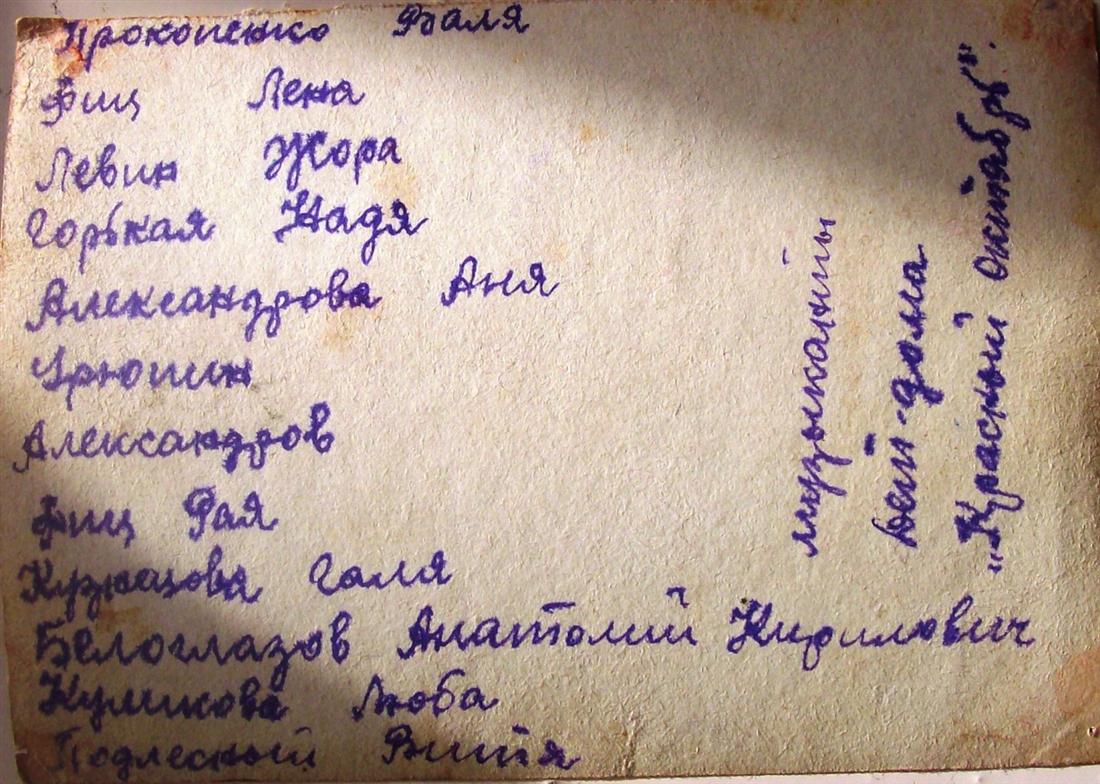 Прокопенко Валя
Фиц Лена
Левин Жора
Горькая Надя
Александрова Аня
Урюпин
Александров
Фиц Рая
Кузнецова Галя
Белоглазов Анатолий Кирилович
Куликова Люба
Подлесный Витя
музыканты
дет-дома
"Красный октябрь".